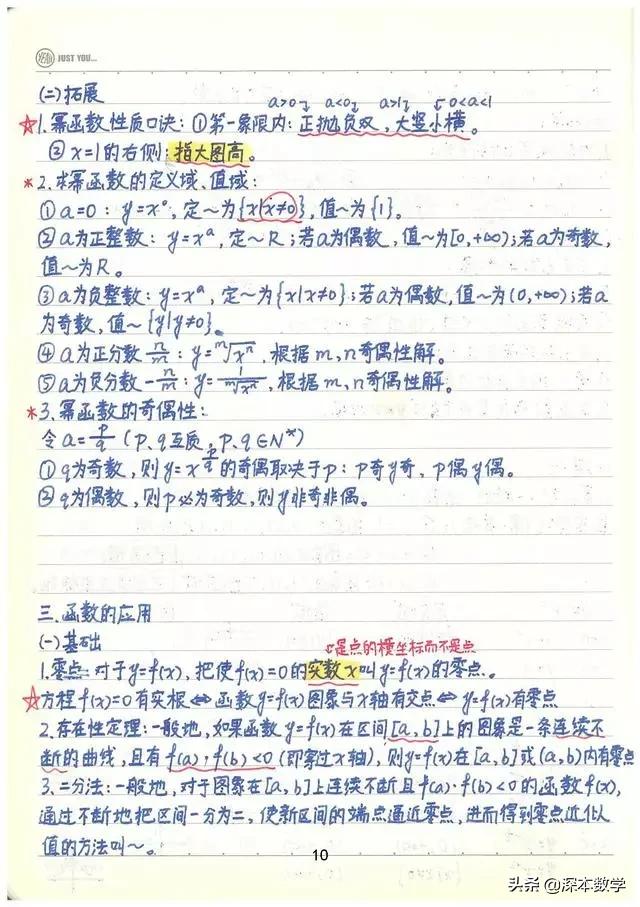 JUST YOU...
(二)拓展
a>0 a<0 a>1 0<a<1
☆1.幂函数性质口诀：①第一象限内：正抛负双，大竖小横。
② x=1的右侧：指大图高。
*2.求幂函数的定义域、值域：
①a=0：y=x⁰，定～为{x|x≠0}，值～为{1}。
②a为正整数：y=xᵃ，定～R；若a为偶数，值～为[0,+∞)；若a为奇数，
值～为R。
③a为负整数：y=xᵃ，定～为{x|x≠0}；若a为偶数，值～为(0,+∞)；若a
为奇数，值～{y|y≠0}。
④a为正分数 n/m：y=ᵐ√xⁿ，根据m、n奇偶性解。
⑤a为负分数-n/m：y=1/ᵐ√xⁿ，根据m、n奇偶性解。
*3.幂函数的奇偶性：
令a=p/q（p、q互质，p、q∈N*）
①q为奇数，则y=x^(p/q)的奇偶取决于p：p奇y奇，p偶y偶。
②q为偶数，则p必为奇数，则y非奇非偶。
三.函数的应用
(一)基础
是点的横坐标而不是点
1.零点：对于y=f(x)，把使f(x)=0的实数x叫y=f(x)的零点。
☆方程f(x)=0有实根⇔函数y=f(x)图象与x轴有交点⇔y=f(x)有零点
2.存在性定理：一般地，如果函数y=f(x)在区间[a,b]上的图象是一条连续不
断的曲线，且有f(a)·f(b)<0(即穿过x轴)，则y=f(x)在[a,b]或(a,b)内有零点
3.二分法：一般地，对于图象在[a,b]上连续不断且f(a)·f(b)<0的函数f(x)，
通过不断地把区间一分为二，使新区间的端点逼近零点，进而得到零点近似
值的方法叫～。
10
头条@深本数学